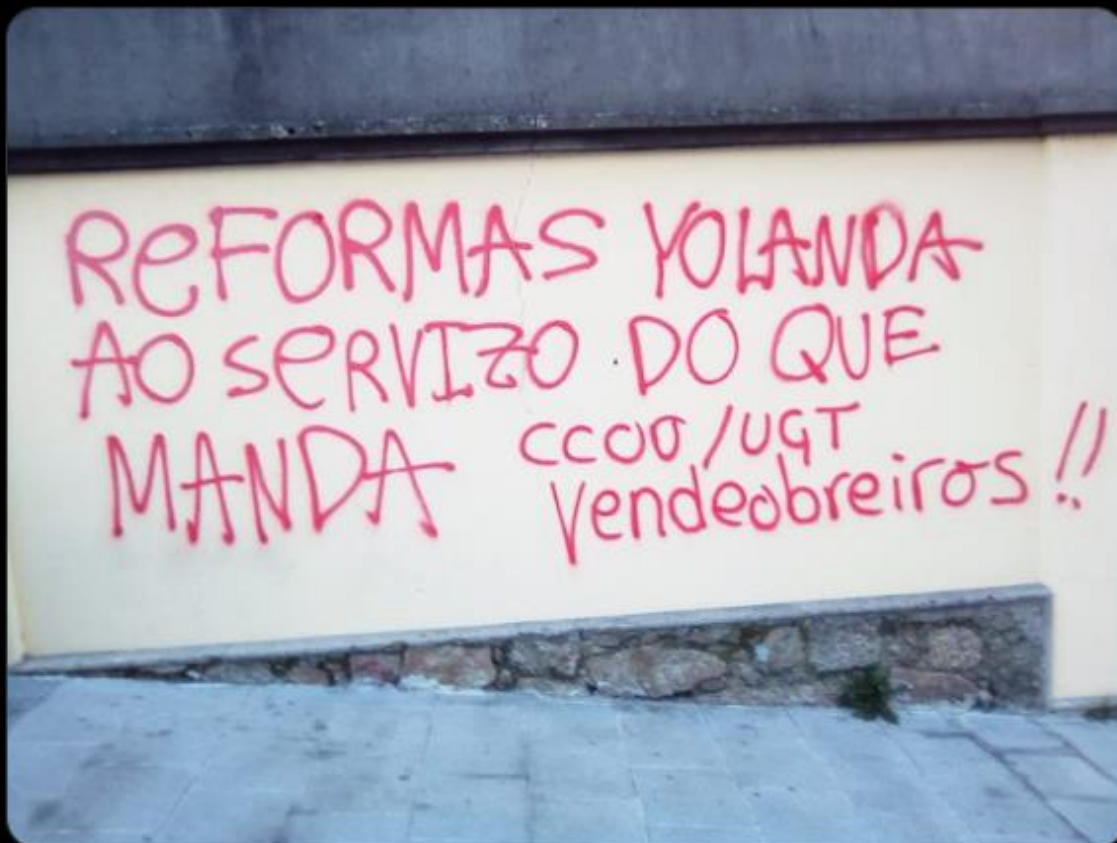 ReFORMAS YOLANDA
AO SeRVIZO DO QUE
MANDA
CCOO/UGT
Vendeobreiros!!